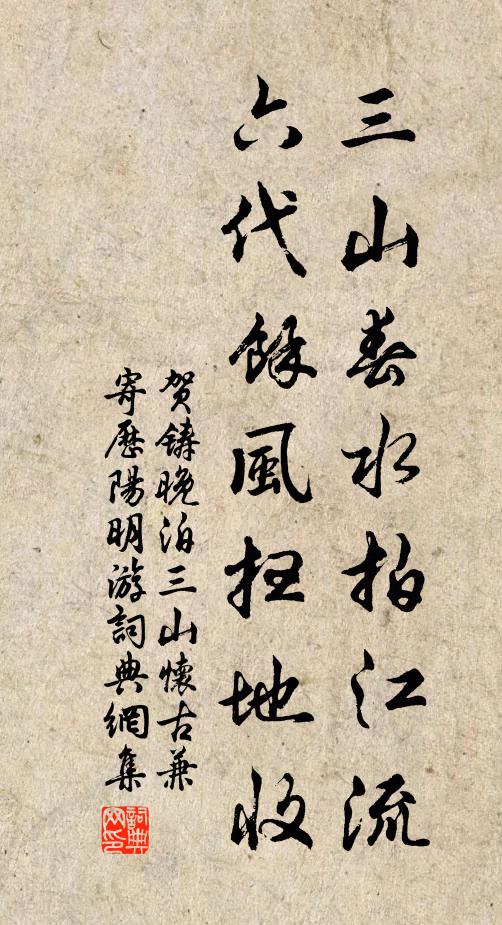 三山春水拍江流
六代餘風掃地收
賀鑄晚泊三山懷古兼
寄歷陽明游詞典網集
詞典
网印